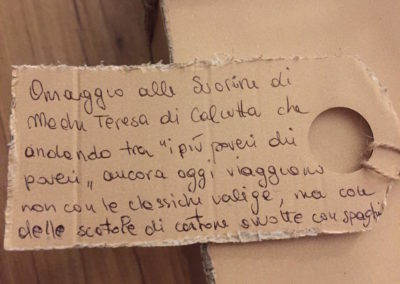 Omaggio alle Suorine di
Madre Teresa di Calcutta che
andando tra "i più poveri dei
poveri" ancora oggi viaggiano
non con le classiche valige, ma con
delle scatole di cartone avvolte con spaghi